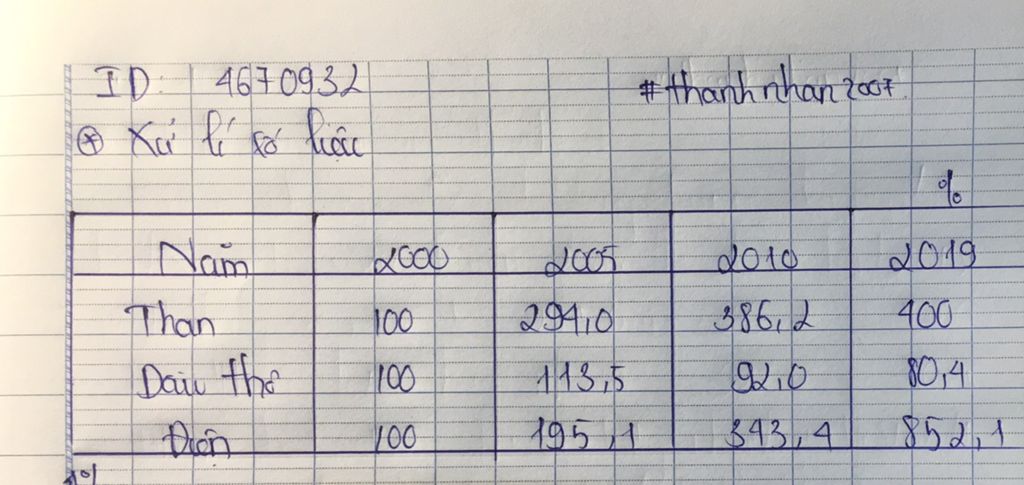 ID: 4670932 #thanhnhan2007
⊛ Xử lí số liệu
%
Năm 2000 2005 2010 2019
Than 100 294,0 386,2 400
Dầu thô 100 113,5 92,0 80,4
Điện 100 195,1 343,4 852,1
%